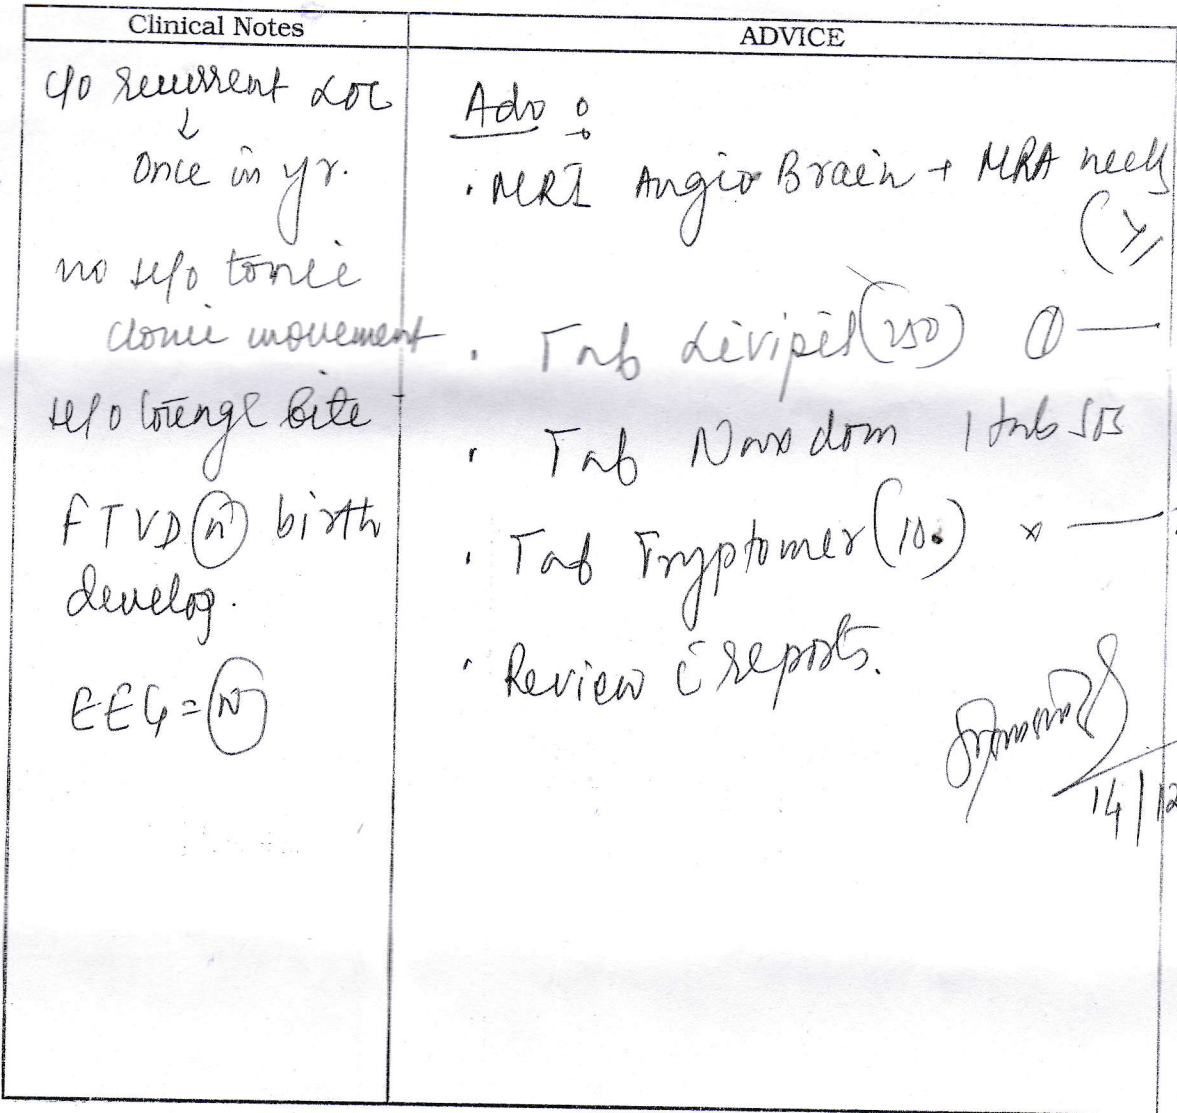 Clinical Notes
ADVICE
c/o recurrent LOC
↓
Once in yr.
no H/o tonic
clonic movement
H/o tounge bite
FTVD (n) birth
develop.
EEG = (N)
Adv :
· MRI Angio Brain + MRA neck
· Tab Livipil (250) ① —
· Tab Naxdom 1 tab SOS
· Tab Tryptomer (10) x —
· Review c̄ reports.
14/12